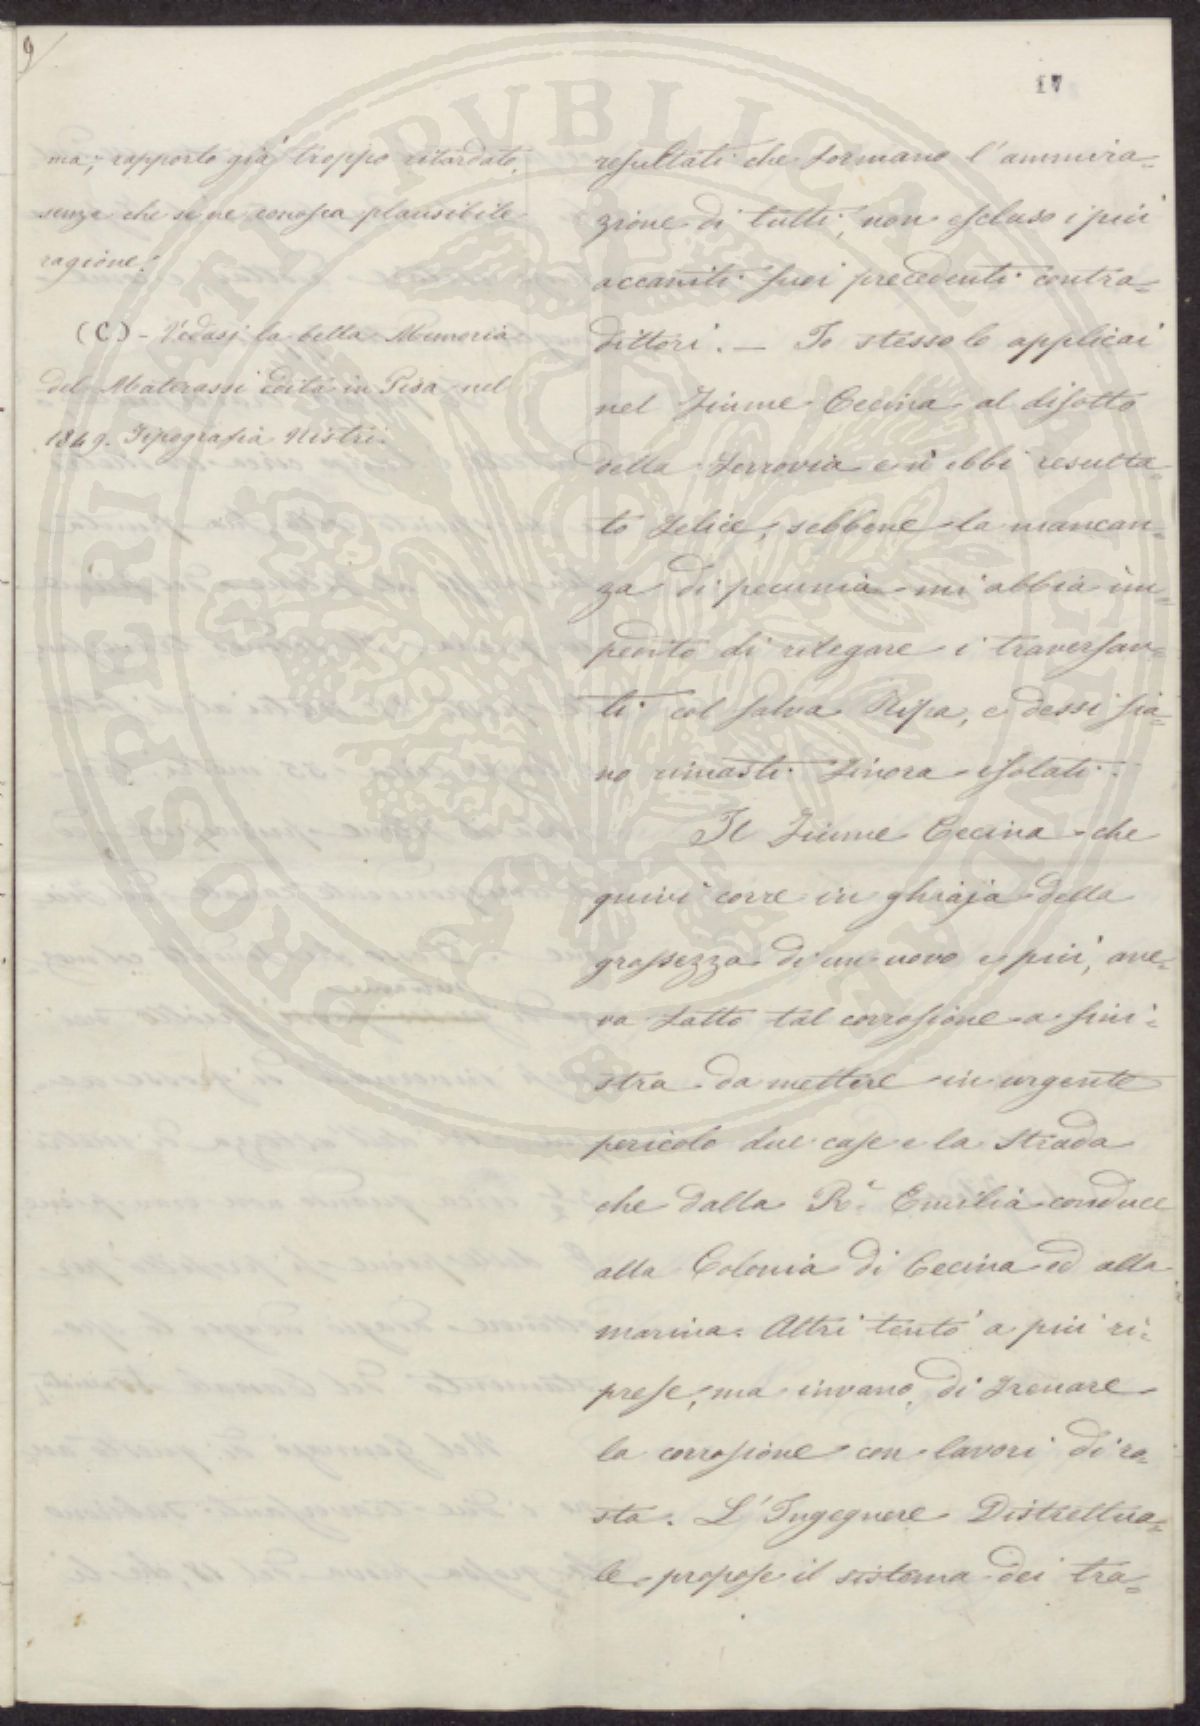 9
17
ma; rapporto già troppo ritardato,
senza che se ne conosca plausibile
ragione.
(C) - Vedasi la bella Memoria
del Materassi edita in Pisa nel
1849. Tipografia Nistri.
resultati che formano l'ammira=
zione di tutti, non escluso i più
accaniti suoi precedenti contra=
dittori. — Io stesso lo applicai
nel Fiume Cecina al disotto
della Ferrovia e n'ebbi resulta=
to felice, sebbene la mancan=
za di pecunia mi abbia im=
pedito di rilegare i traversan=
ti col salva Ripa, e dessi sia=
no rimasti finora isolati.
Il Fiume Cecina che
quivi corre in ghiaja della
grossezza di un uovo e più, ave=
va fatto tal corrosione a sini=
stra da mettere in urgente
pericolo due case e la Strada
che dalla R.ª Emilia conduce
alla Colonia di Cecina ed alla
marina. Altri tentò a più ri=
prese, ma invano, di frenare
la corrosione con lavori di ro=
sta. L'Ingegnere Distrettua=
le propose il sistema dei tra=
PROSPERITATI PUBLICAE AUGENDAE